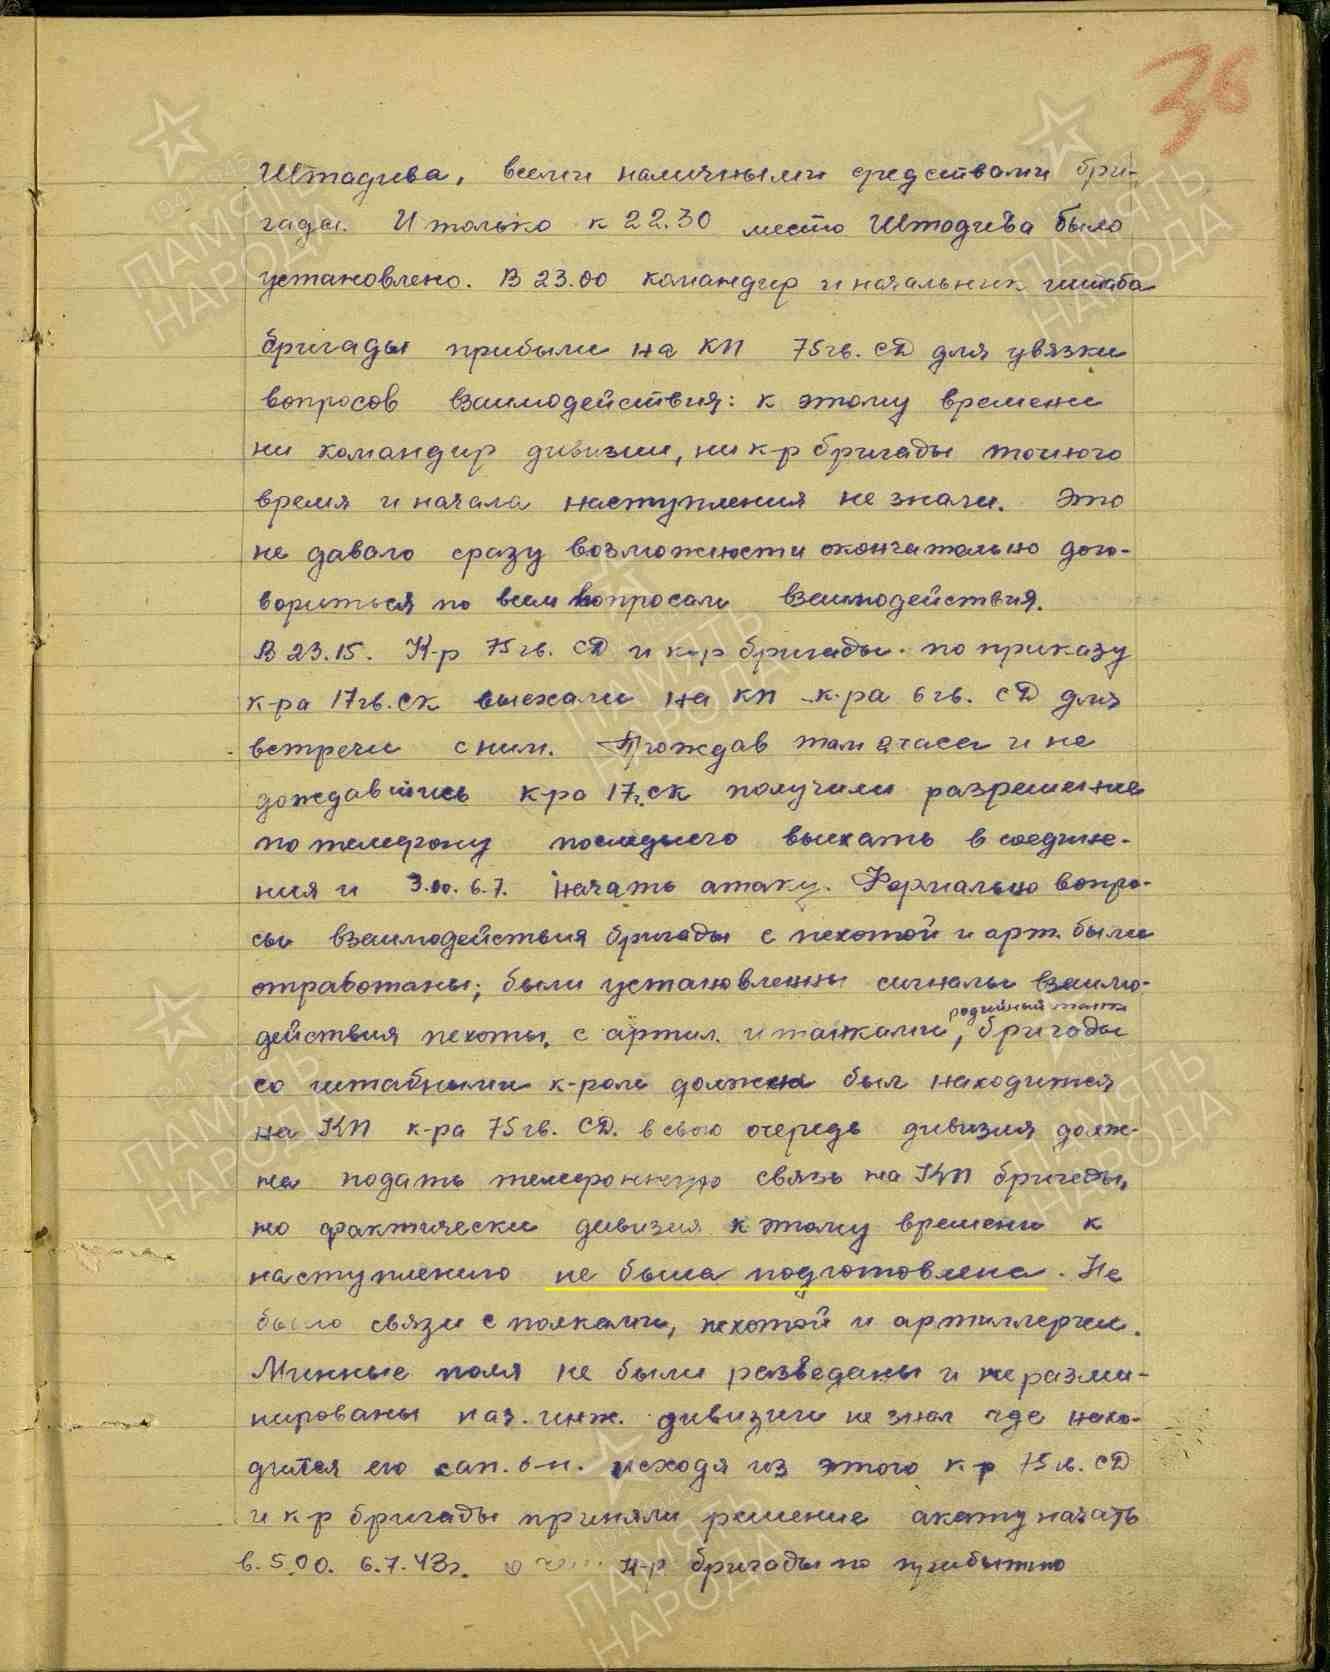 36
Штадива, всеми наличными средствами бри-
гады. И только к 22.30 место Штадива было
установлено. В 23.00 командир и начальник штаба
бригады прибыли на КП 75гв. СД для увязки
вопросов взаимодействия: к этому времени
ни командир дивизии, ни к-р бригады точного
время и начала наступления не знали. Это
не давало сразу возможности окончательно дого-
вориться по всем вопросам взаимодействия.
В 23.15. К-р 75гв. СД и к-р бригады по приказу
к-ра 17гв.ск выехали на КП к-ра 6гв. СД для
встречи с ним. Прождав там 2 часа и не
дождавшись к-ра 17г.ск получили разрешение
по телефону последнего выехать в соедине-
ния и 3.00. 6.7. начать атаку. Формально вопро-
сы взаимодействия бригады с пехотой и арт. были
отработаны; были установленны сигналы взаимо-
действия пехоты, с артил. и танками, бригады
радийный танк
со штабными к-ром должна был находится
на КП к-ра 75гв. СД. в свою очередь дивизия долж-
на подать телефонную связь на КП бригады,
но фактически дивизия к этому времени к
наступлению не была подготовлена. Не
было связи с полками, пехотой и артиллерией.
Минные поля не были разведаны и не разми-
нированы наз. инж. дивизии не знал где нахо-
дится его сап. б-н. исходя из этого к-р 75гв. СД
и к-р бригады приняли решение акату начать
в. 5.00. 6.7.43г. К-р бригады по прибытию
ПАМЯТЬ
НАРОДА
ПАМЯТЬ
НАРОДА
ПАМЯТЬ
НАРОДА
ПАМЯТЬ
НАРОДА
ПАМЯТЬ
НАРОДА
ПАМЯТЬ
НАРОДА